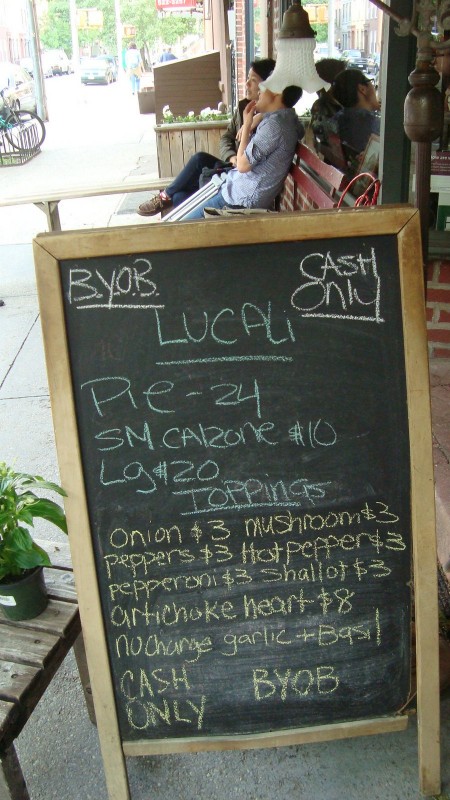 B.Y.O.B.
CASH
Only
LUCALi
PIE - 24
SM CAlzone $10
Lg $20
TOPPINgs
onion $3 mushroom $3
peppers $3 Hot pepper $3
pepperoni $3 Shallot $3
artichoke heart $8
no charge garlic + Basil
CASH BYOB
ONLY